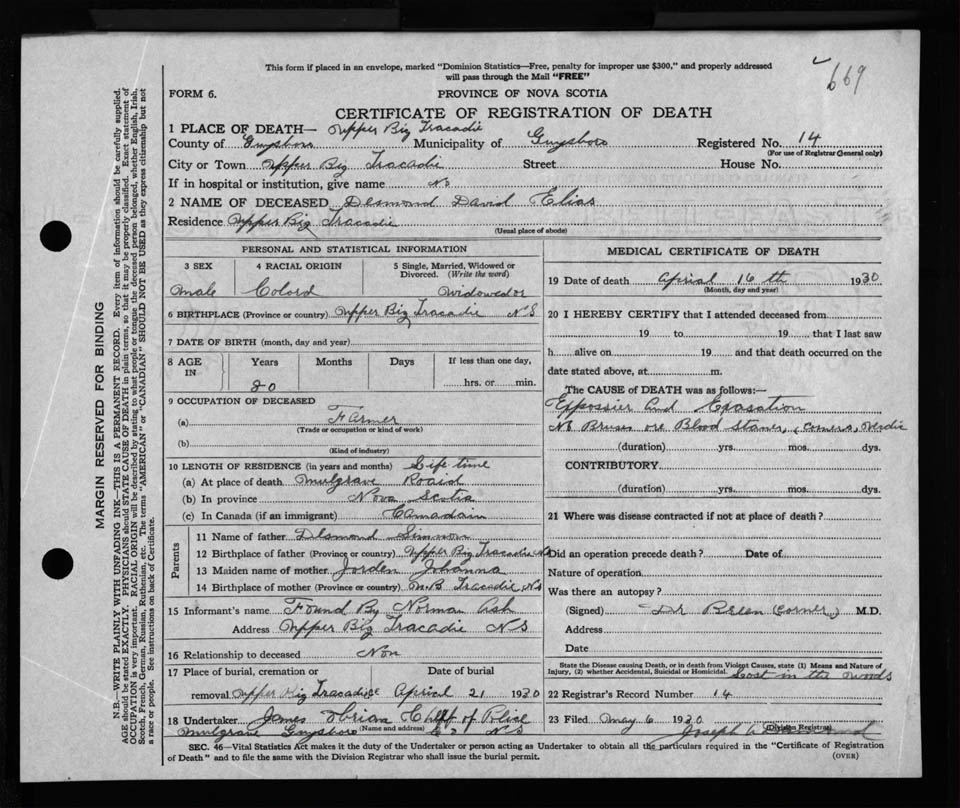 This form if placed in an envelope, marked "Dominion Statistics—Free, penalty for improper use $300," and properly addressed
will pass through the Mail "FREE"
669
FORM 6.
PROVINCE OF NOVA SCOTIA
CERTIFICATE OF REGISTRATION OF DEATH
1 PLACE OF DEATH— Upper Big Tracadie
County of Guysboro Municipality of Guysboro Registered No. 14
(For use of Registrar General only)
City or Town Upper Big Tracadie Street House No.
If in hospital or institution, give name No
2 NAME OF DECEASED Desmond David Elias
Residence Upper Big Tracadie
(Usual place of abode)
PERSONAL AND STATISTICAL INFORMATION
3 SEX 4 RACIAL ORIGIN 5 Single, Married, Widowed or Divorced. (Write the word)
male Colord Widowedor
6 BIRTHPLACE (Province or country) Upper Big Tracadie N S
7 DATE OF BIRTH (month, day and year)
8 AGE IN Years Months Days If less than one day,
80 hrs. or min.
9 OCCUPATION OF DECEASED
(a) Farmer
(Trade or occupation or kind of work)
(b)
(Kind of industry)
10 LENGTH OF RESIDENCE (in years and months) Life time
(a) At place of death Mulgrave Roaid
(b) In province Nova Scotia
(c) In Canada (if an immigrant) Canadain
Parents
11 Name of father Desmond Simmon
12 Birthplace of father (Province or country) Upper Big Tracadie N S
13 Maiden name of mother Jorden Johanna
14 Birthplace of mother (Province or country) B Tracadie N S
15 Informant's name Found By Norman Ash
Address Upper Big Tracadie N S
16 Relationship to deceased Non
17 Place of burial, cremation or Date of burial
removal Upper Big Tracadie Aprial 21 1930
18 Undertaker James Obrian Chief of Police
(Name and address)
Mulgrave Guysboro Co N S
MEDICAL CERTIFICATE OF DEATH
19 Date of death Aprial 16 th 1930
(Month, day and year)
20 I HEREBY CERTIFY that I attended deceased from
19 to 19 that I last saw
h alive on 19 and that death occurred on the
date stated above, at m.
The CAUSE of DEATH was as follows:—
Expossier and Exasation
No Bruses ore Blood Stanes, Corners, Verdic
(duration) yrs. mos. dys.
CONTRIBUTORY
(duration) yrs. mos. dys.
21 Where was disease contracted if not at place of death?
Did an operation precede death? Date of
Nature of operation
Was there an autopsy?
(Signed) Dr Breen (Corner) M.D.
Address
Date
State the Disease causing Death, or in death from Violent Causes, state (1) Means and Nature of
Injury, (2) whether Accidental, Suicidal or Homicidal. Loost in the woods
22 Registrar's Record Number 14
23 Filed May 6 1930
Joseph
(Division Registrar)
SEC. 46—Vital Statistics Act makes it the duty of the Undertaker or person acting as Undertaker to obtain all the particulars required in the "Certificate of Registration
of Death" and to file the same with the Division Registrar who shall issue the burial permit.
(OVER)
MARGIN RESERVED FOR BINDING
N.B.—WRITE PLAINLY WITH UNFADING INK—THIS IS A PERMANENT RECORD. Every item of information should be carefully supplied.
AGE should be stated EXACTLY. PHYSICIANS should STATE CAUSE OF DEATH in plain terms, so that it may be properly classified. Exact statement of
OCCUPATION is very important. RACIAL ORIGIN will be described by stating to what people or tongue the deceased person belonged, whether English, Irish,
Scotch, French, German, Russian, Ruthenian, etc. The terms "AMERICAN" or "CANADIAN" SHOULD NOT BE USED as they express citizenship but not
a race or people. See instructions on back of Certificate.